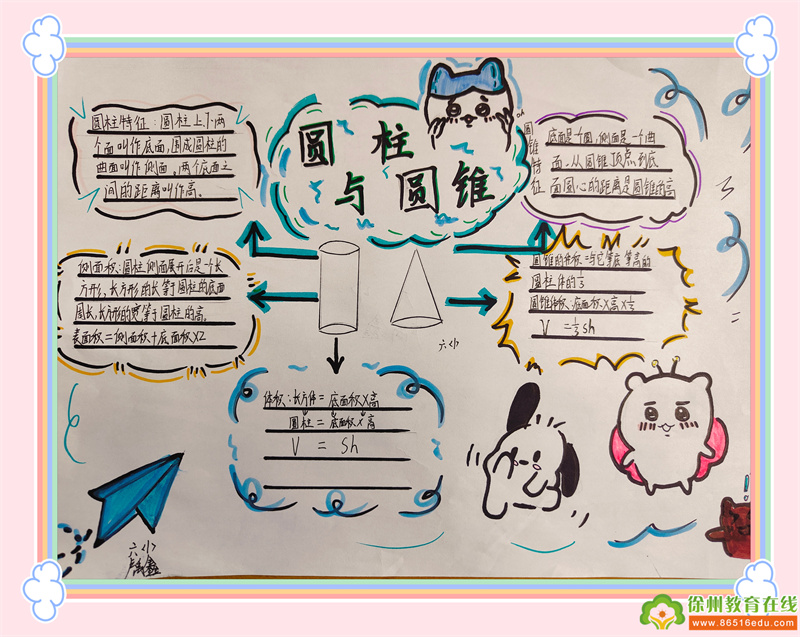 圆柱
与圆锥
圆柱特征:圆柱上下两
个面叫作底面,围成圆柱的
曲面叫作侧面,两个底面之
间的距离叫作高。
圆锥特征
底面是个圆,侧面是一个曲
面.从圆锥顶点到底
面圆心的距离是圆锥的高
侧面积:圆柱侧面展开后是个长
方形,长方形的长等于圆柱的底面
周长,长方形的宽等于圆柱的高。
表面积=侧面积+底面积×2
圆锥的体积=与它等底等高的
圆柱体的1/3
圆锥体积:底面积×高×1/3
V =1/3sh
六(1)
体积:长方体=底面积×高
圆柱=底面积×高
V = Sh
六(1)
徐州教育在线
www.86516edu.com